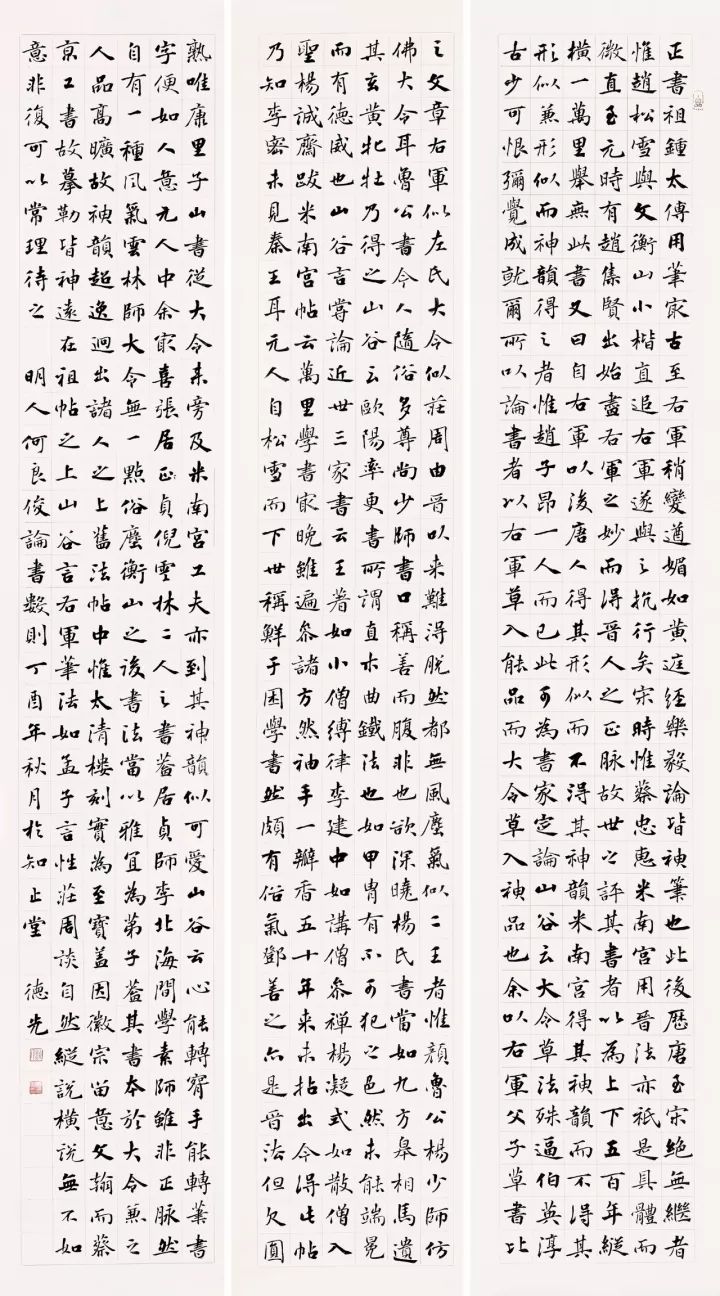 正書祖鍾太傅用筆最古至右軍稍變遒媚如黃庭經樂毅論皆神筆也此後歷唐至宋絕無繼者
惟趙松雪與文衡山小楷直追右軍遂與之抗行矣宋時惟蔡忠惠米南宮用晉法亦祇是具體而
微直至元時有趙集賢出始盡右軍之妙而得晉人之正脉故世之評其書者以為上下五百年縱
橫一萬里舉無此書又曰自右軍以後唐人得其形似而不得其神韻米南宮得其神韻而不得其
形似兼形似而神韻得之者惟趙子昂一人而已此可為書家定論山谷云大令草法殊逼伯英淳
古少可恨彌覺成就爾所以論書者以右軍草入能品而大令草入神品也余以右軍父子草書比
之文章右軍似左氏大令似莊周由晉以來難得脫然都無風塵氣似二王者惟顏魯公楊少師仿
佛大令耳魯公書今人隨俗多尊尚少師書口稱善而腹非也欲深曉楊氏書當如九方皋相馬遺
其玄黃牝牡乃得之山谷云歐陽率更書所謂直木曲鐵法也如甲冑有不可犯之色然未能端冕
而有德威也山谷言嘗論近世三家書云王著如小僧縛律李建中如講僧參禪楊凝式如散僧入
聖楊誠齋跋米南宮帖云萬里學書最晚雖遍參諸方然袖手一瓣香五十年來未拈出今得此帖
乃知李密未見秦王耳元人自松雪而下世稱鮮于困學書然頗有俗氣鄧善之亦是晉法但欠圓
熟唯康里子山書從大令來旁及米南宮工夫亦到其神韻似可愛山谷云心能轉手能轉筆書
字便如人意元人中余最喜張居正貞倪雲林二人之書蓋居貞師李北海間學素師雖非正脉然
自有一種風氣雲林師大令無一點俗塵衡山之後書法當以雅宜為第子蓋其書本於大令兼之
人品高曠故神韻超逸迥出諸人之上舊法帖中惟太清樓刻實為至寶蓋因徽宗留意文翰而蔡
京工書故摹勒皆神遠在祖帖之上山谷言右軍筆法如孟子言性莊周談自然縱說橫說無不如
意非復可以常理待之 明人何良俊論書數則丁酉年秋月於知止堂 德先